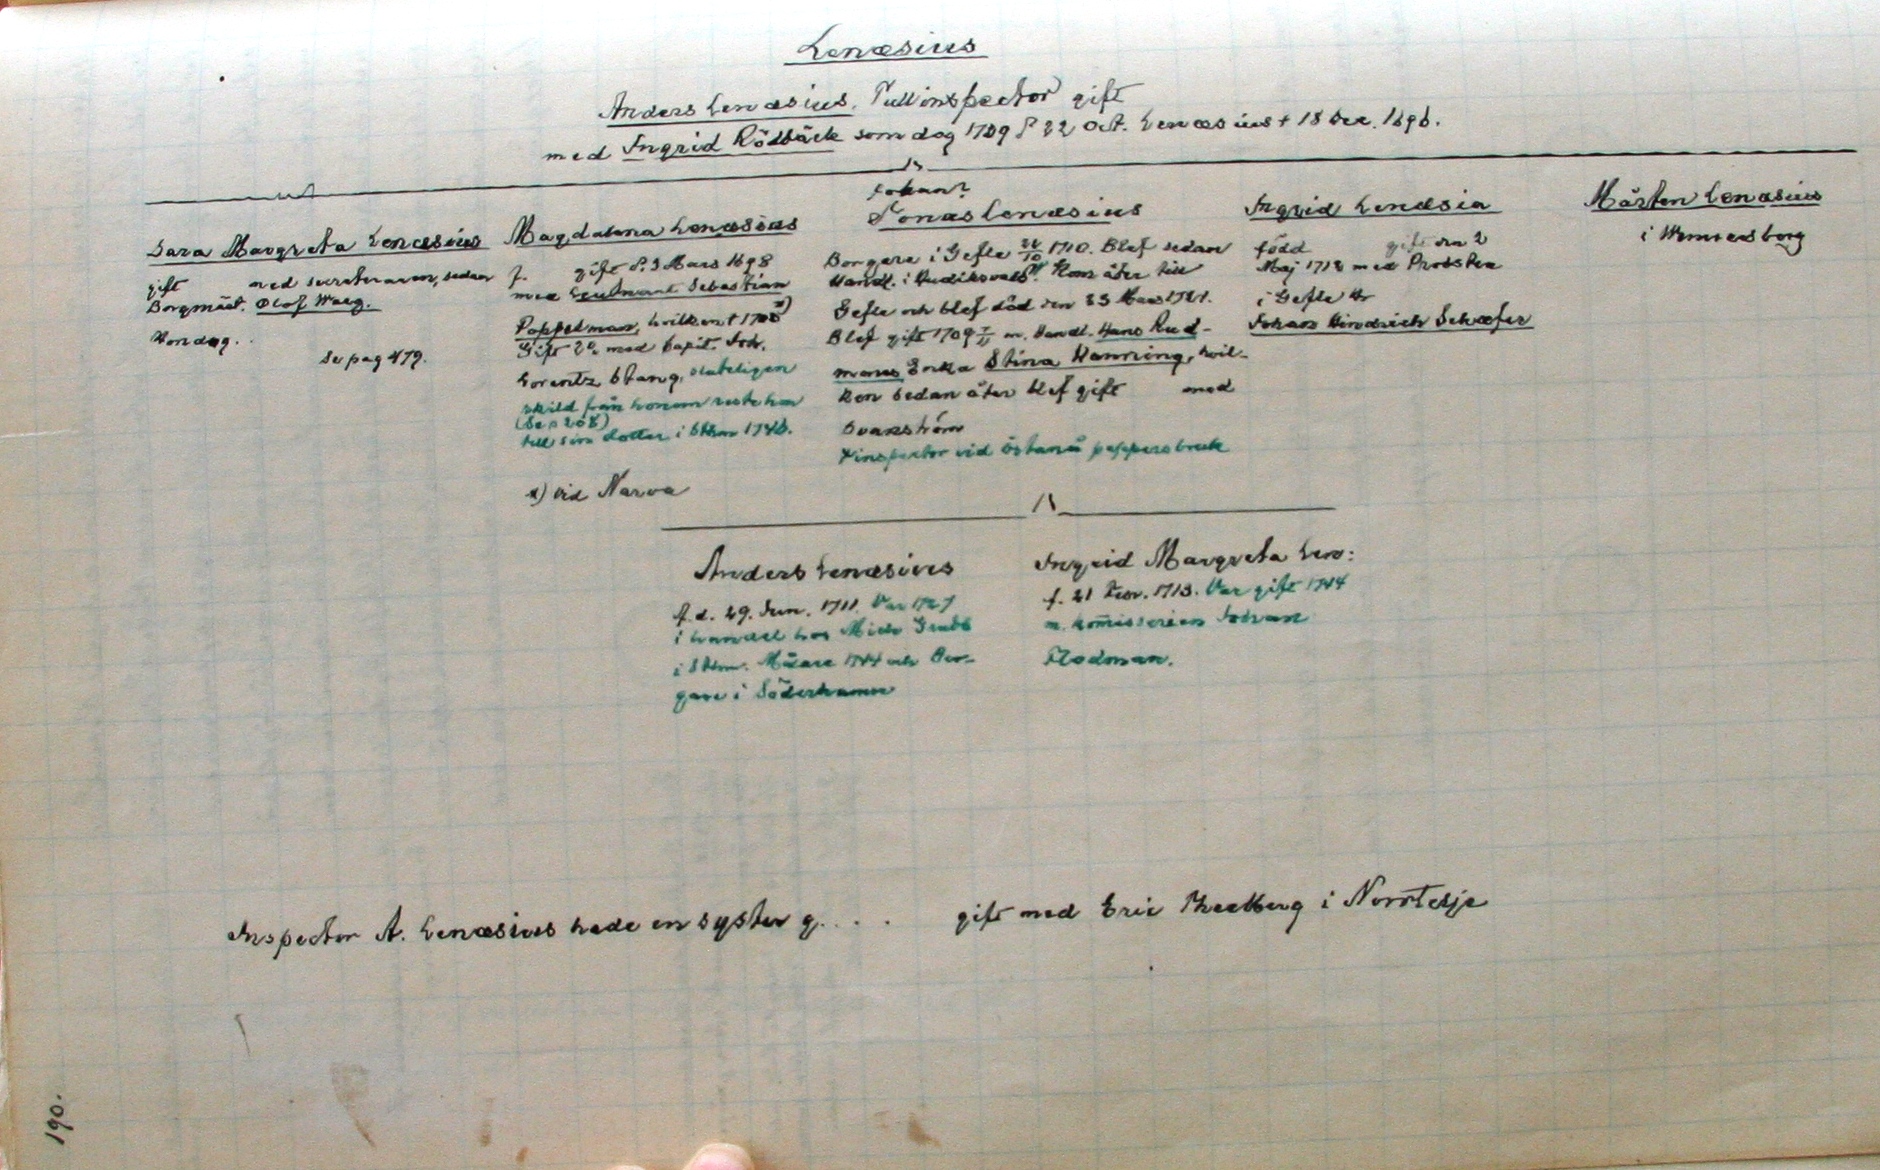 Lenæsius
Anders Lenæsius, Tullinspector gift
med Ingrid Rödbäck som dog 1709 d 22 Oct. Lenæsius † 18 Dec. 1696.
Sara Margreta Lenæsius
gift med secreteraren, sedan
Borgmäst. Olof Waeg.
Hon dog.
Se pag 479.
Magdalena Lenæsius
f. gift d. 3 Mars 1698
med Leutnant Sebastian
Poppelman, hvilken † 1700 x)
Gift 2o med Capit. Joh.
Lorentz Stang, sluteligen
skild från honom reste hon
(Se p 208)
till sin dotter i Sthm 1746.
x) vid Narva
Johan?
Jonas Lenæsius
Borgare i Gefle 1710. Blef sedan
Handl. i Hudiksvall x) Kom åter till
Gefle och blef död den 23 Mars 1721.
Blef gift 1709 m. Handl. Hans Rud-
mans Enka Stina Hanning, hvil-
ken sedan åter blef gift med
Svanström
x inspector vid Östanå pappersbruk
Ingrid Lenæsia
född gift den 2
Maj 1712 med Prosten
i Gefle Hr
Johan Hindrich Schæfer
Mårten Lenæsius
i Wenersborg
Anders Lenæsius
f. d. 29. Jun. 1711. Var 1727
i handel hos Mich Grubb
i Sthm. Mäare 1744 och Bor-
gare i Söderhamn
Ingrid Margreta Len:
f. 21 Febr. 1713. Var gift 1744
m. komissarien Johan
Flodman.
Inspector A. Lenæsius hade en syster g. . . . gift med Eric Theelberg i Norrtelje
190.